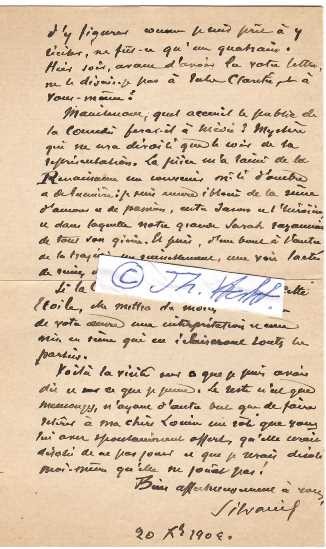 d'y figurer comme je suis prêt à y
réciter, ne fût-ce qu'un quatrain.
Hier soir, avant d'avoir lu votre lettre,
ne le disais-je pas à Jules Claretie, et à
vous-même ?
Maintenant, quel accueil le public de
la Comédie fera-t-il à Médée ? Mystère
qui ne sera dévoilé que le soir de sa
représentation. La pièce m'a laissé de la
Renaissance un souvenir mêlé d'ombre
et de lumière : je suis encore ébloui de la scène
d'amour et de passion, entre Jason et l'héroïne
et dans laquelle notre grande Sarah rayonnait
de tout son génie. Et puis, d'un bout à l'autre
de la tragédie, un
© Th. Vetter
Si la
Etoile, elle mettra de
de votre œuvre une interprétation et une
mise en scène qui en éclaireront toutes les
parties.
Voilà la vérité sur ce que je puis avoir
dit et sur ce que je pense. Le reste n'est que
mensonge, n'ayant d'autre but que de faire
retirer à ma chère Louise un rôle que vous
lui avez spontanément offert, qu'elle serait
désolée de ne pas jouer et que je serais désolé
moi-même qu'elle ne jouât pas !
Bien affectueusement à vous,
Silvain
20 Xbre 1902.